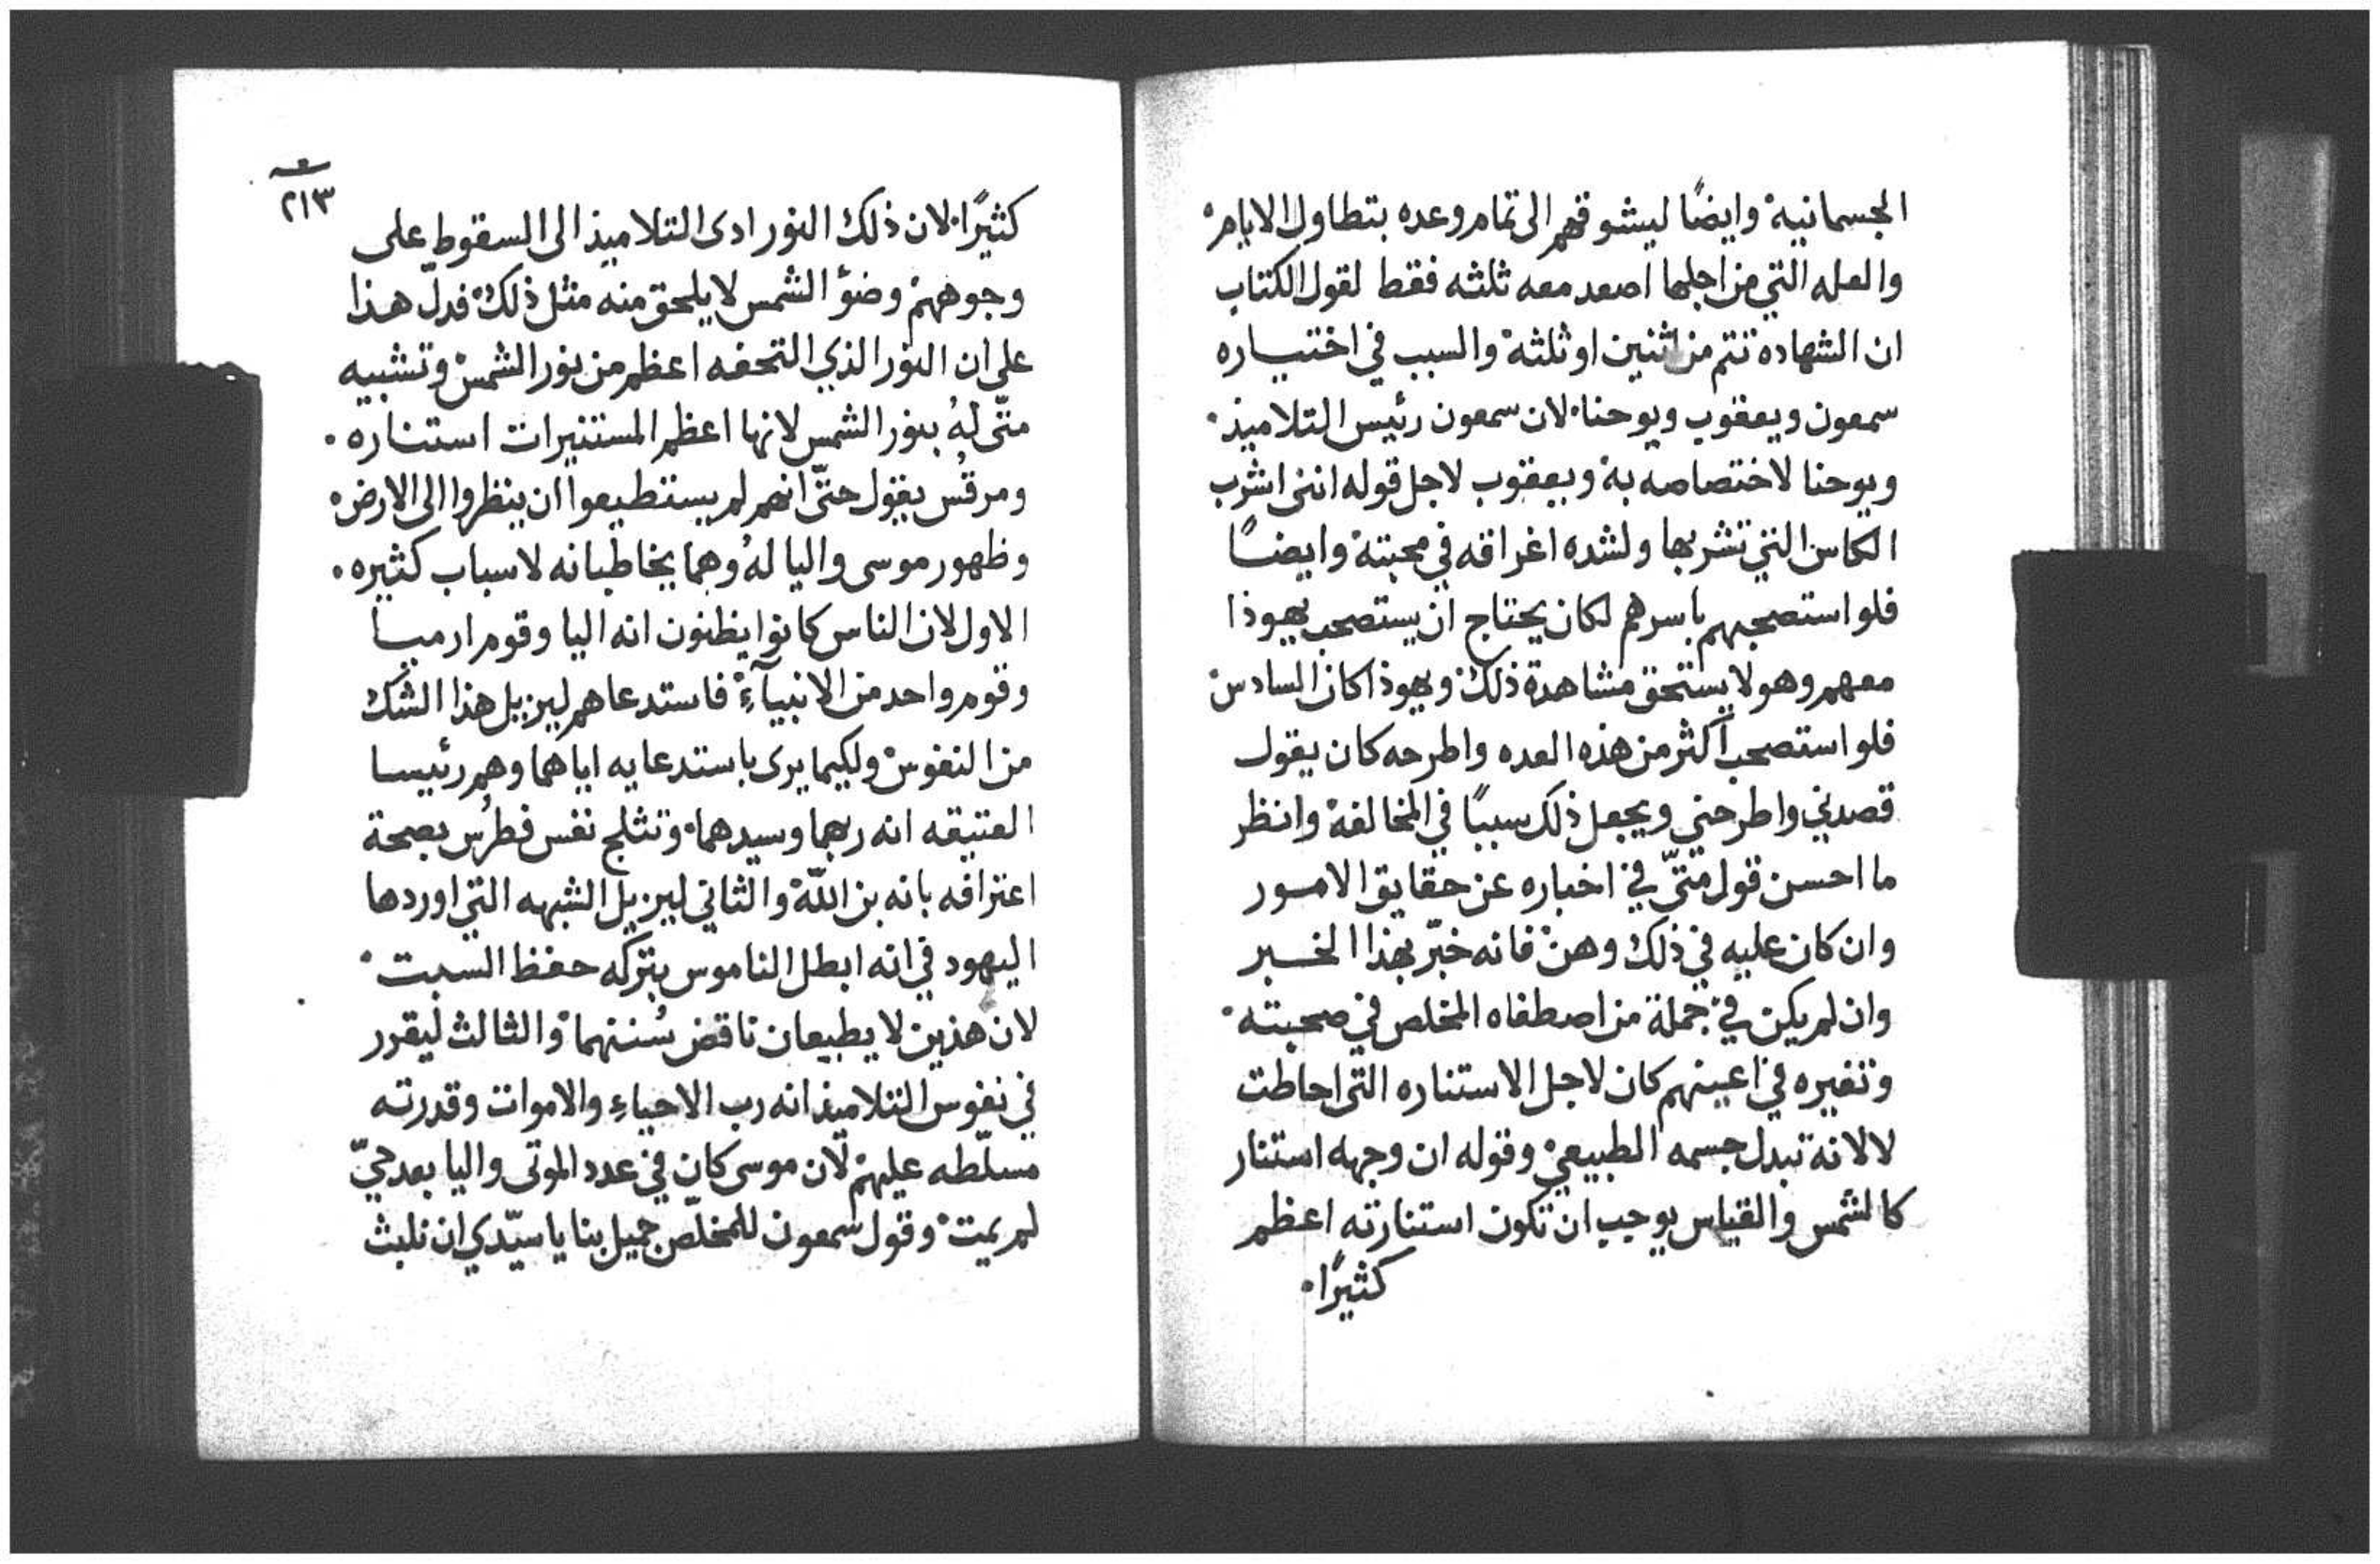 الجسمانية وايضًا ليشوقهم الى تمام وعده بتطاول الايام
والعله التي من اجلها اصعد معه ثلثه فقط لقول الكتاب
ان الشهاده تتم من اثنين او ثلثة والسبب في اختياره
سمعون ويعقوب ويوحنا لان سمعون رئيس التلاميذ
ويوحنا لاختصاصه به ويعقوب لاجل قوله انني اشرب
الكاس التي تشربها ولشده اغراقه في محبته وايضًا
فلو استصحبهم باسرهم لكان يحتاج ان يستصحب يهوذا
معهم وهو لا يستحق مشاهدة ذلك ويهوذا كان السادس
فلو استصحب اكثر من هذه العده واطرحه كان يقول
قصدني واطرحني ويجعل ذلك سببًا في المخالفة وانظر
ما احسن قول متّى في اخباره عن حقايق الامور
وان كان عليه في ذلك وهن فانه خبّر بهذا الخبر
وان لم يكن في جملة من اصطفاه المخلص في صحبته
وتغيره في اعينهم كان لاجل الاستناره التي احاطت
لا لانه تبدل جسمه الطبيعي وقوله ان وجهه استنار
كالشمس والقياس يوجب ان تكون استنارته اعظم
كثيرًا
٢١٣
كثيرًا لان ذلك النور ادى التلاميذ الى السقوط على
وجوههم وضؤ الشمس لا يلحق منه مثل ذلك فدلّ هذا
على ان النور الذي التحفه اعظم من نور الشمس وتشبيه
متّى لهُ بنور الشمس لانها اعظم المستنيرات استناره
ومرقُس يقول حتّى انهم لم يستطيعوا ان ينظروا الى الارض
وظهور موسى واليا لهُ وهما يخاطبانه لاسباب كثيره
الاول لان الناس كانوا يظنون انه اليا وقوم ارميا
وقوم واحد من الانبيآءِ فاستدعاهم ليزيل هذا الشك
من النفوس ولكيما يرى باستدعايه اياهما وهم رئيسا
العتيقه انه ربهما وسيدهما وتثلج نفس فطرُس بصحة
اعترافه بانه بن اللّه والثاني ليزيل الشبهه التي اوردها
اليهود في انه ابطل الناموس بتركه حفظ السبت
لان هذين لا يطيعان ناقض سُننهما والثالث ليقرر
في نفوس التلاميذ انه رب الاحياءِ والاموات وقدرته
مسلّطه عليهم لان موسى كان في عدد الموتى واليا بعد حيّ
لم يمت وقول سمعون للمخلّص جميل بنا يا سيّدي ان نلبث